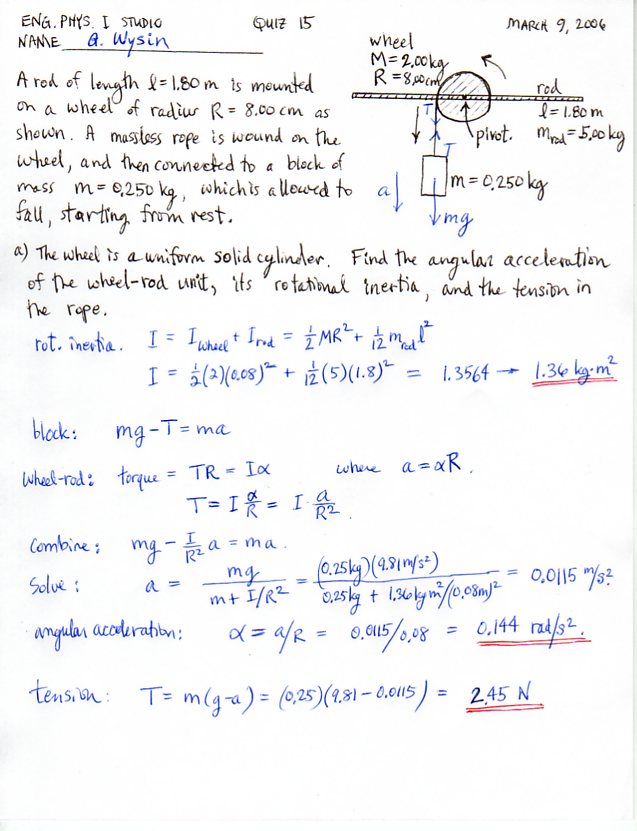 ENG. PHYS. I STUDIO QUIZ 15 MARCH 9, 2006
NAME G. Wysin
wheel
M = 2.00 kg
R = 8.00 cm
rod
l = 1.80 m
m_rod = 5.00 kg
pivot.
T
T
a
m = 0.250 kg
mg
A rod of length l = 1.80 m is mounted
on a wheel of radius R = 8.00 cm as
shown. A massless rope is wound on the
wheel, and then connected to a block of
mass m = 0.250 kg, which is allowed to
fall, starting from rest.
a) The wheel is a uniform solid cylinder. Find the angular acceleration
of the wheel-rod unit, its rotational inertia, and the tension in
the rope.
rot. inertia. I = I_wheel + I_rod = 1/2 MR² + 1/12 m_rod l²
I = 1/2 (2)(0.08)² + 1/12 (5)(1.8)² = 1.3564 → 1.36 kg·m²
block: mg - T = ma
wheel-rod: torque = TR = Iα where a = αR.
T = I α/R = I · a/R².
Combine: mg - I/R² a = ma.
Solve: a = mg / (m + I/R²) = (0.25 kg)(9.81 m/s²) / (0.25 kg + 1.36 kg m²/(0.08m)²) = 0.0115 m/s².
angular acceleration: α = a/R = 0.0115/0.08 = 0.144 rad/s².
tension: T = m(g-a) = (0.25)(9.81 - 0.0115) = 2.45 N